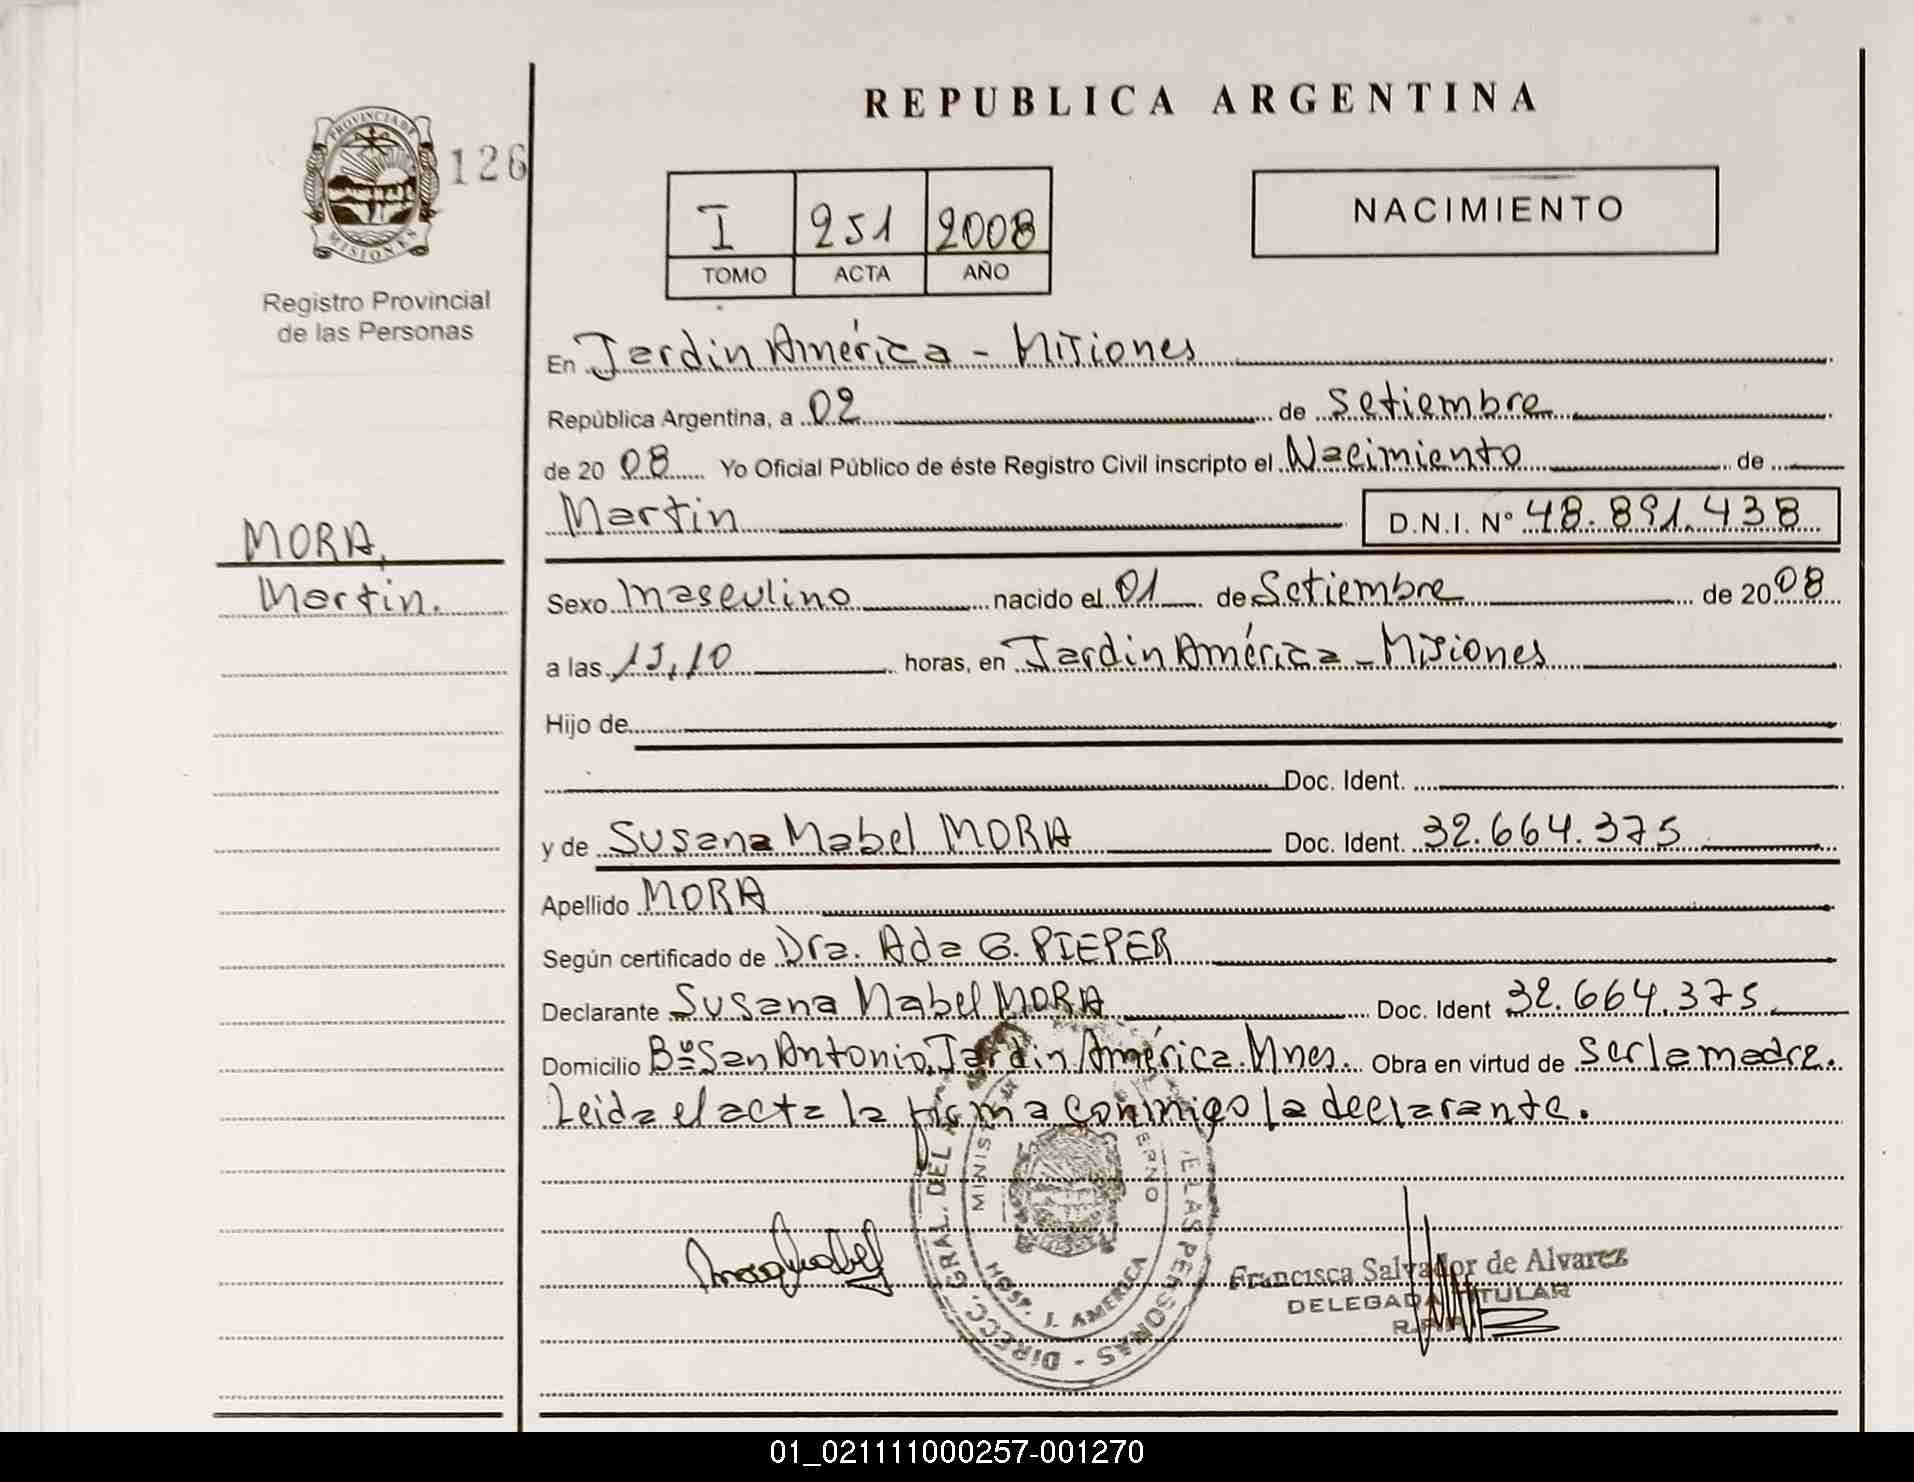 REPUBLICA ARGENTINA
PROVINCIA DE
MISIONES
126
Registro Provincial
de las Personas
I 251 2008
TOMO ACTA AÑO
NACIMIENTO
En Jardin América - Misiones
República Argentina, a 02 de Setiembre
de 20 08 Yo Oficial Público de éste Registro Civil inscripto el Nacimiento de
Martin D.N.I. N° 48.891.438
MORA,
Martin.
Sexo masculino nacido el 01 de Setiembre de 20 08
a las 15,10 horas, en Jardin América - Misiones
Hijo de
Doc. Ident.
y de Susana Mabel MORA Doc. Ident. 32.664.375
Apellido MORA
Según certificado de Dra. Ada G. PIEPER
Declarante Susana Mabel MORA Doc. Ident 32.664.375
Domicilio Bº San Antonio, Jardin América. Mnes. Obra en virtud de ser la madre.
Leida el acta la firma conmigo la declarante.
DIRECC. GRAL. DEL DE LAS PERSONAS
HOSP. J. AMERICA
Francisca Salvador de Alvarez
DELEGADA TITULAR
R.P.P
01_021111000257-001270